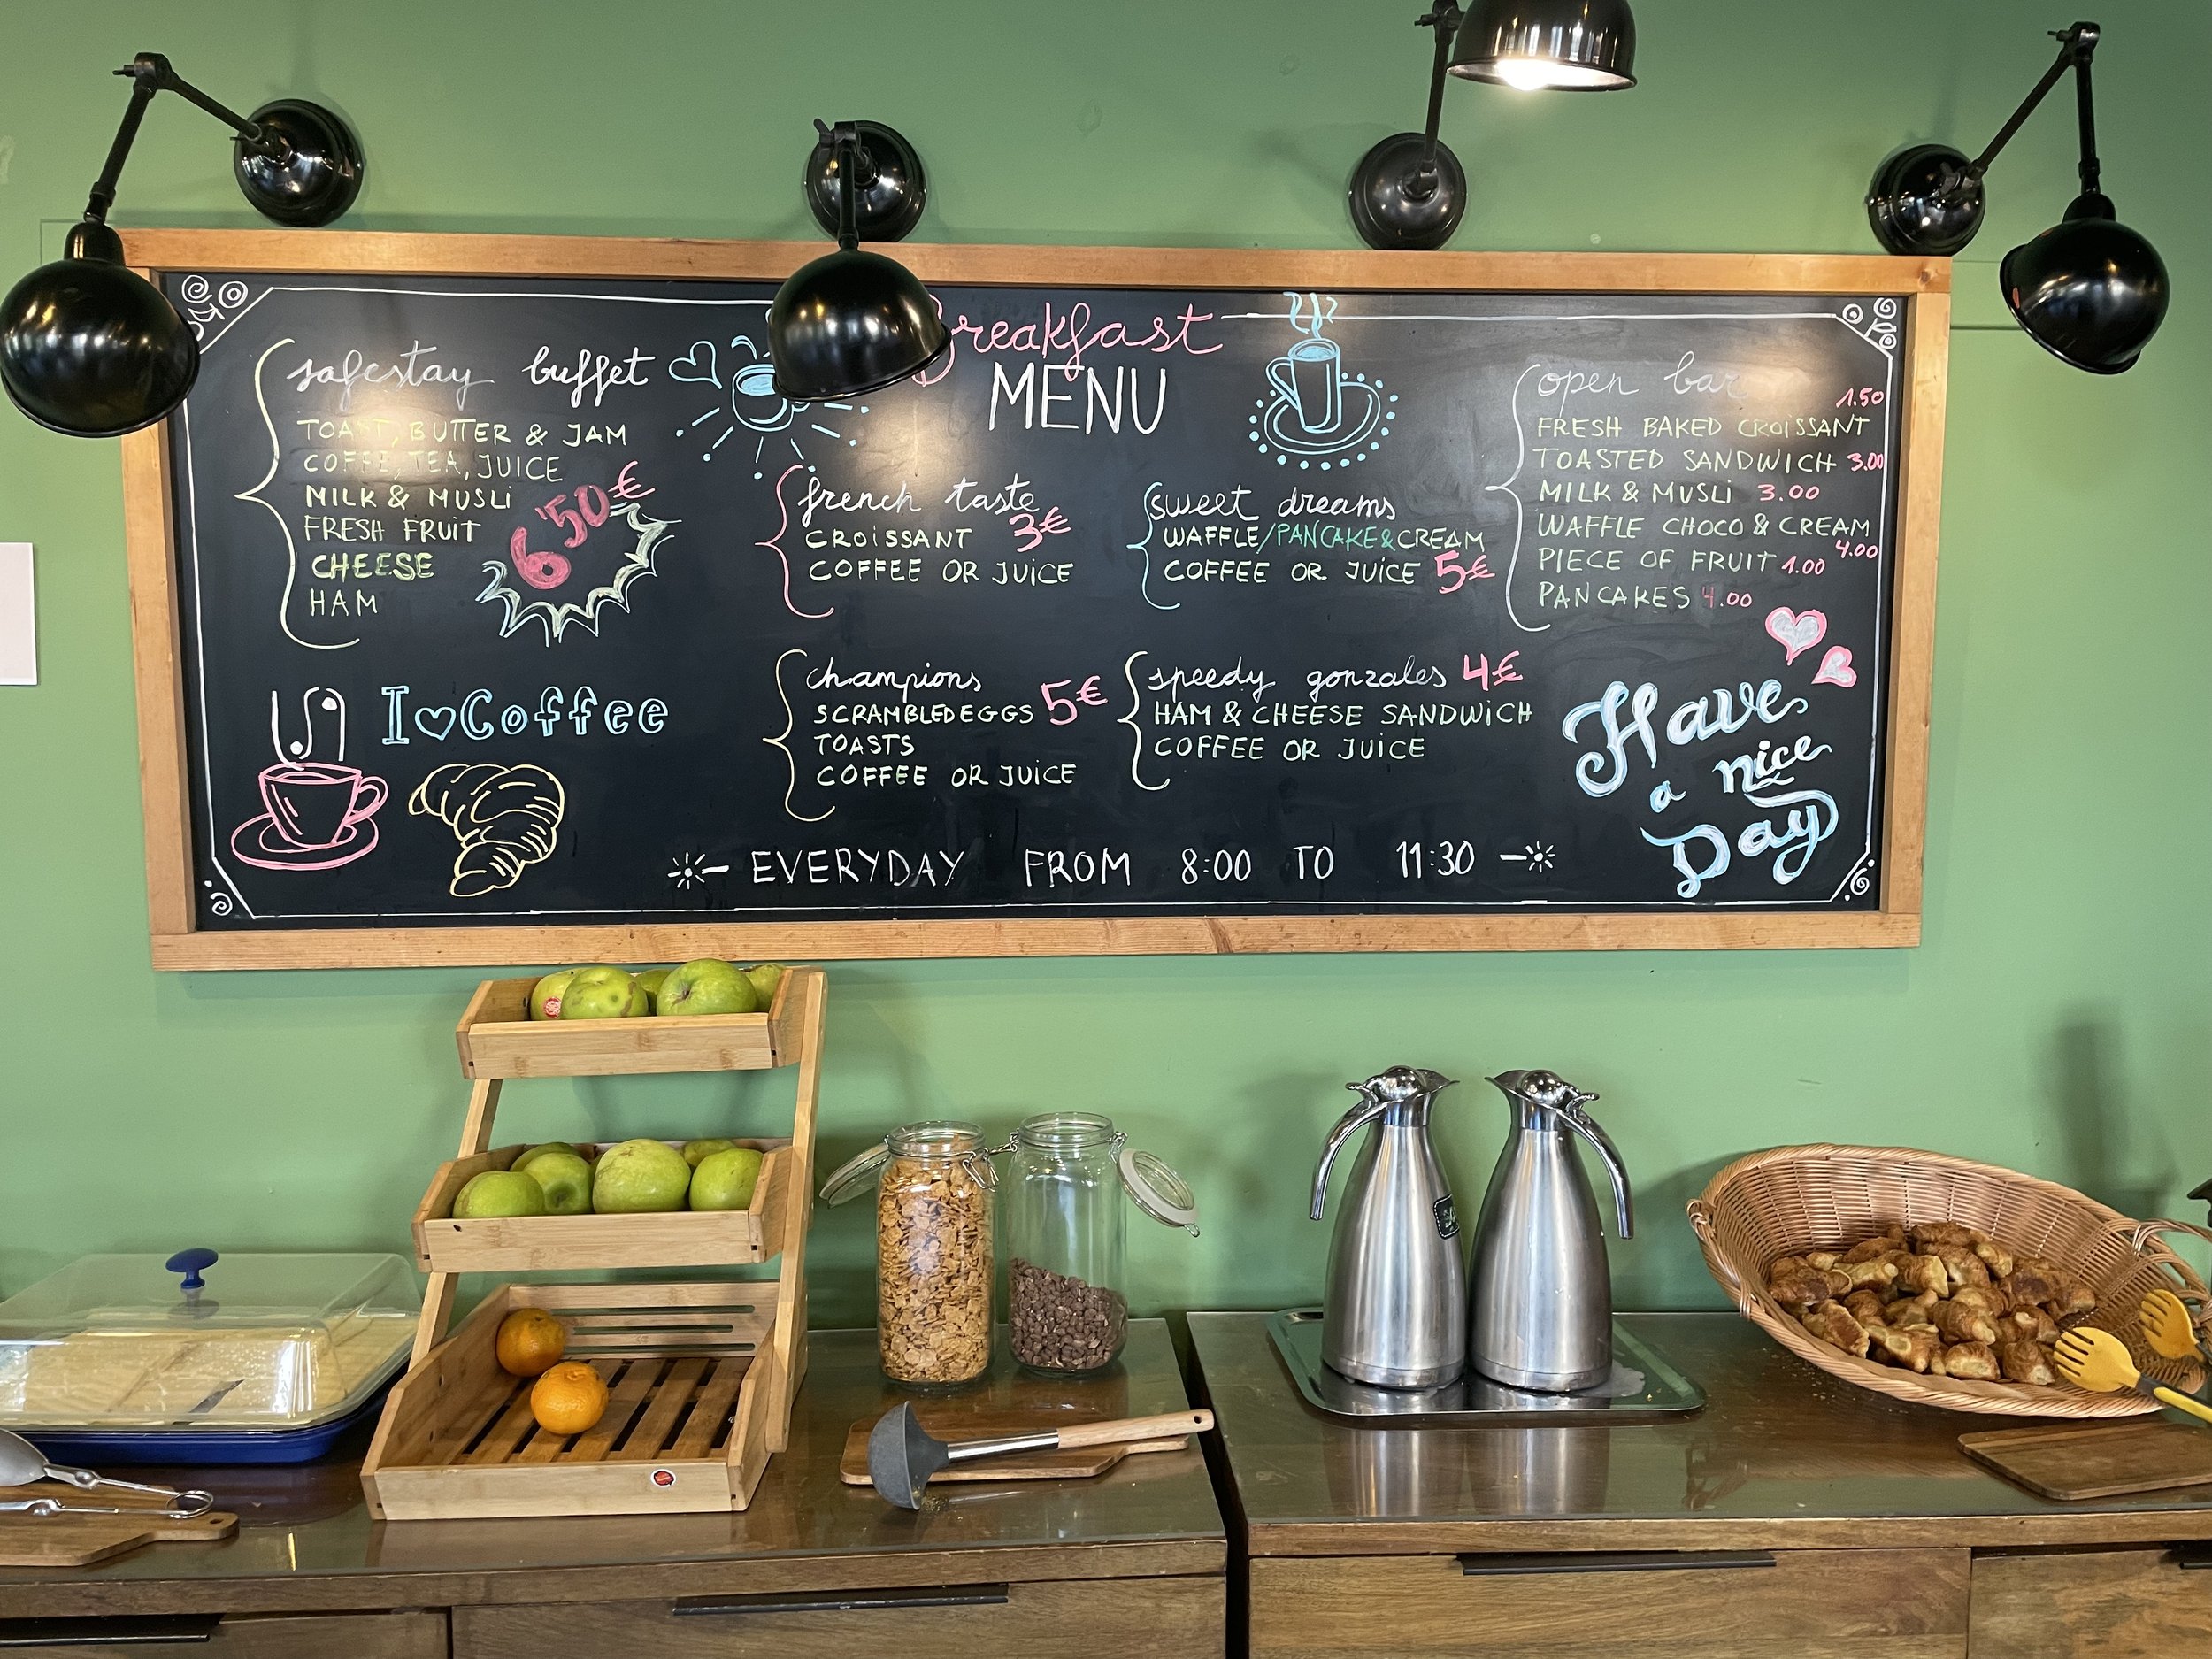 Breakfast
MENU
safestay buffet
TOAST, BUTTER & JAM
COFFE, TEA, JUICE
MILK & MUSLi
FRESH FRUiT
CHEESE
HAM
6'50€
I♡Coffee
french taste
CROiSSANT 3€
COFFEE OR JUiCE
sweet dreams
WAFFLE/PANCAKE&CREAM
COFFEE OR JUiCE 5€
champions
SCRAMBLED EGGS 5€
TOASTS
COFFEE OR JUiCE
speedy gonzales 4€
HAM & CHEESE SANDWiCH
COFFEE OR JUiCE
open bar
1.50
FRESH BAKED CROiSSANT
TOASTED SANDWiCH 3.00
MiLK & MUSLi 3.00
WAFFLE CHOCO & CREAM
4.00
PIECE OF FRUiT 1.00
PANCAKES 4.00
Have
a nice
Day
EVERYDAY FROM 8:00 TO 11:30